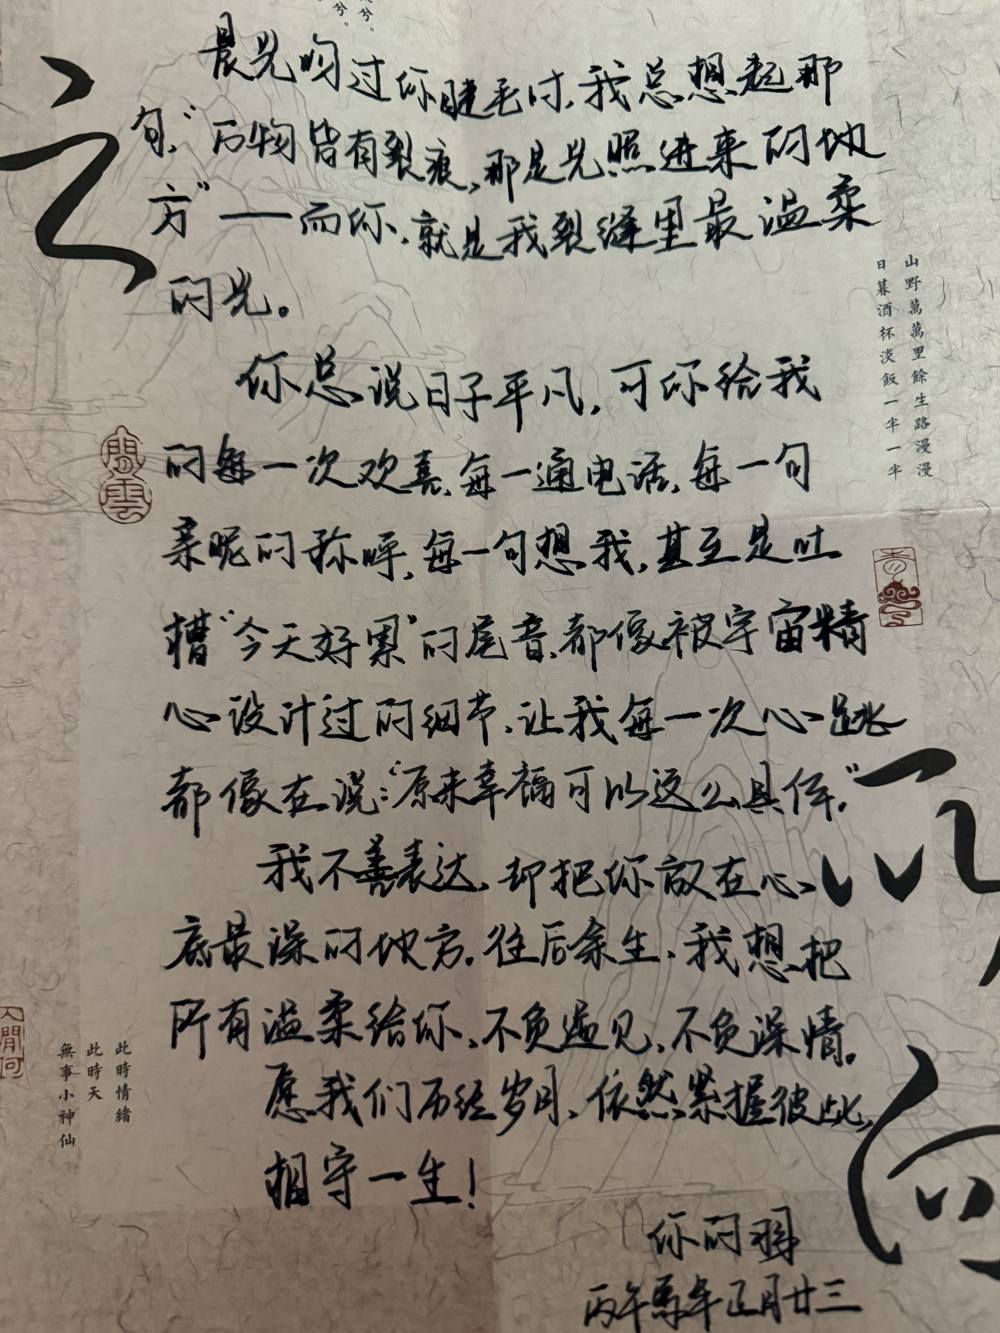 晨光吻过你睫毛时，我总想起那
句，“万物皆有裂痕，那是光照进来的地
方”——而你，就是我裂缝里最温柔
的光。
你总说日子平凡，可你给我
的每一次欢喜，每一通电话，每一句
亲昵的称呼，每一句想我，甚至是吐
槽“今天好累”的尾音，都像被宇宙精
心设计过的细节，让我每一次心跳
都像在说：“原来幸福可以这么具体。”
我不善表达，却把你放在心
底最深的地方。往后余生，我想把
所有温柔给你，不负遇见，不负深情。
愿我们历经岁月，依然紧握彼此，
相守一生！
你的羽
丙午马年正月廿三
山野萬萬里餘生路漫漫
日暮酒杯淡飯一半一半
閒雲
此時情緒
此時天
無事小神仙